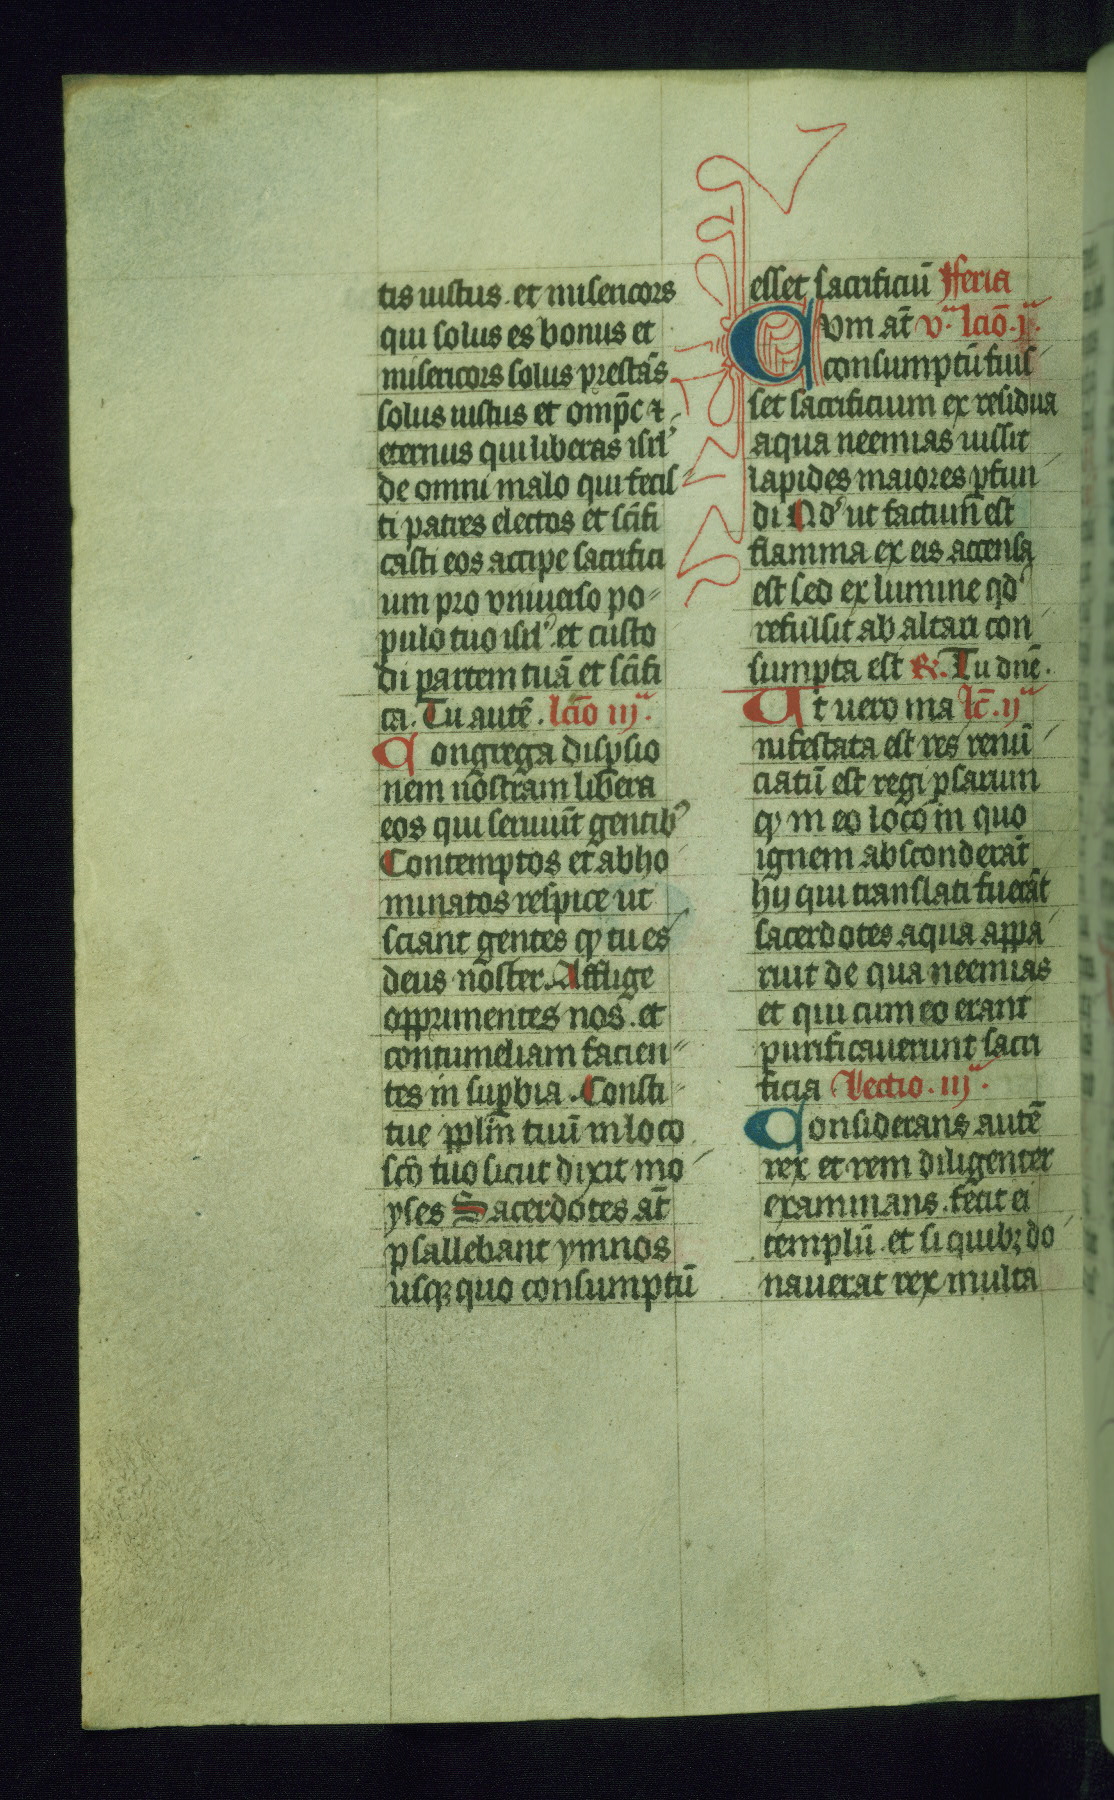 tis iustus. et misericors
qui solus es bonus et
misericors solus prestās
solus iustus et omp̄c ⁊
eternus qui liberas isrl'
de omni malo qui fecis
ti patres electos et sc̄ifi
casti eos accipe sacrifici
um pro vniuerso po
pulo tuo isrl'. et custo
di partem tuā et sc̄ifi
ca. Tu autē. lc̄io iij.ᵃ
Congrega disp̱sio
nem nōstram libera
eos qui seruiūt gentibꝰ
Contemptos et abho
minatos respice ut
sciant gentes qꝫ tu es
deus nōster. Afflige
opprimentes nos. et
contumeliam facien
tes in sup̱bia. Consti
tue pp̄lm̄ tuū in loco
sc̄o tuo sicut dixit mo
yses Sacerdotes aūt
psallebant ymnos
usqꝫ quo consumptū
esset sacrificiū Fferia
Cvm at̄ v.ᵃ lc̄io. j.ᵃ
consumptū fuis
set sacrificium ex residua
aqua neemias iussit
lapides maiores p̱fun
di Qd' ut factum est
flamma ex eis accensa
est sed ex lumine qd'
refulsit ab altari con
sumpta est R. Tu dn̄e.
Ut vero ma lc̄. ijᵃ
nifestata est res renū
ciatū est regi p̱sarum
qꝫ in eo loco in quo
ignem absconderāt
hij qui translati fuerāt
sacerdotes aqua appa
ruit de qua neemias
et qui cum eo erant
purificauerunt sacri
ficia Lectio. iij.ᵃ
Considerans autē
rex et rem diligenter
examinans. fecit ei
templū. et si quibꝫ do
nauerat rex multa